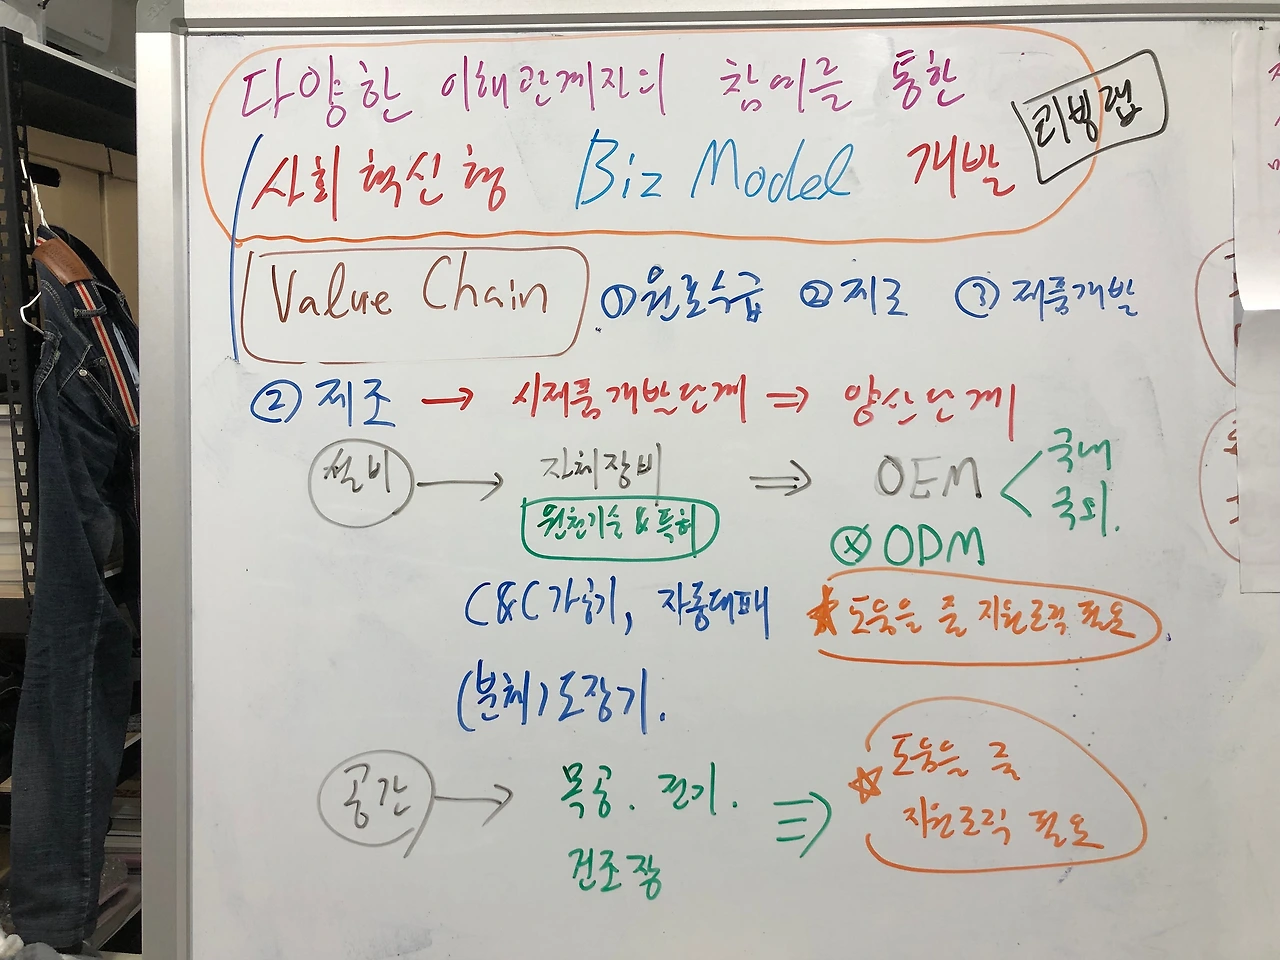 다양한 이해관계자의 참여를 통한
리빙랩
사회혁신형 Biz Model 개발
Value Chain ①원료수급 ②제조 ③제품개발
②제조 → 시제품개발단계 ⇒ 양산단계
설비 → 자체장비 ⇒ OEM < 국내
국외.
원천기술 & 특허
ⓧ ODM
C&C가공기, 자동대패
★ 도움을 줄 지원조직 필요.
(분체)도장기.
공간 → 목공. 전기. ⇒ ☆ 도움을 줄
지원조직 필요
건조장